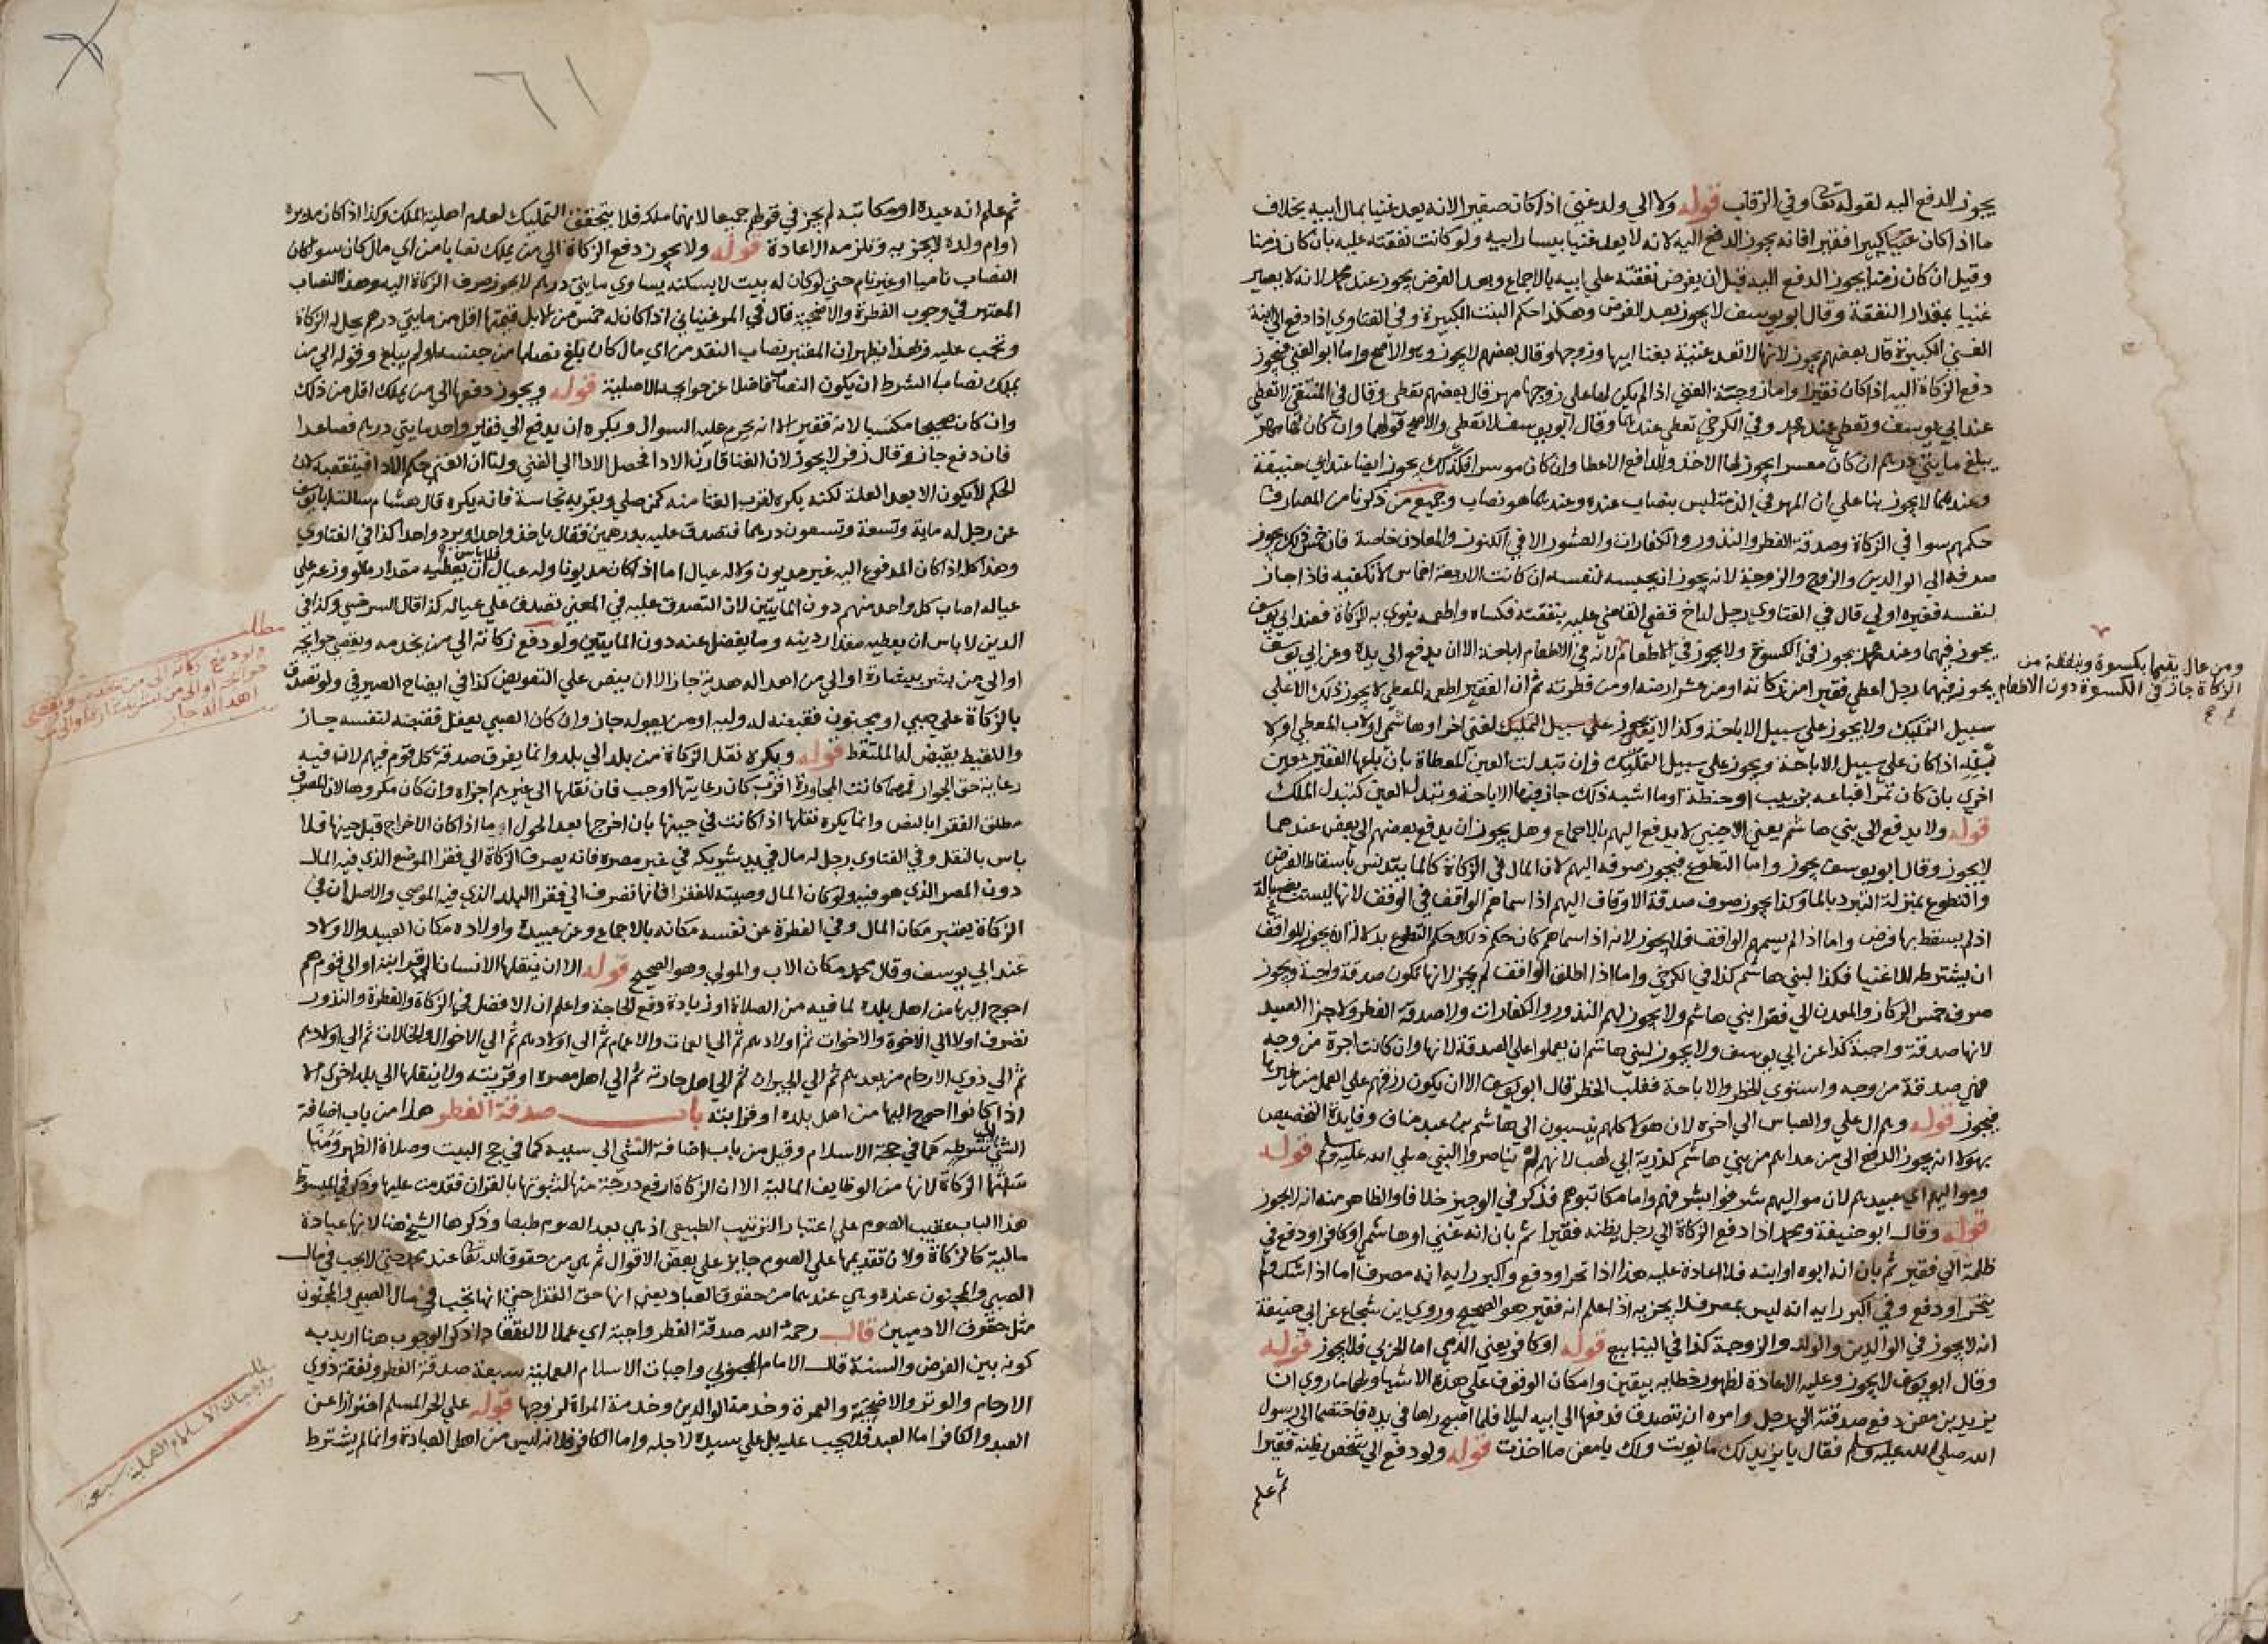 يجوز الدفع اليه لقوله تعا وفي الرقاب قوله ولا الى ولد غني اذا كان صغيرا لانه يعد غنيا بمال ابيه بخلاف
ما اذا كان كبيرا فقيرا فانه يجوز الدفع اليه لانه لا يعد غنيا بيسار ابيه ولو كانت نفقته عليه بان كان زمنا
وقيل ان كان زمنا يجوز الدفع اليه قبل ان يفرض نفقته على ابيه بالاجماع وبعد الفرض يجوز عند محمد لانه لا يصير
غنيا بمقدار النفقة وقال ابو يوسف لا يجوز بعد الفرض وهكذا حكم البنت الكبيرة وفي الفتاوي اذا دفع الى ابنة
الغني الكبيرة قال بعضهم يجوز لانها لا تعد غنية بغنا ابيها وزوجها وقال بعضهم لا يجوز وهو الاصح واما ابو الغني فيجوز
دفع الزكاة اليه اذا كان فقيرا واما زوجة الغني اذا لم يكن لها على زوجها مهر قال بعضهم تعطى وقال في المنتقى لا تعطى
عند ابي يوسف وتعطى عند محمد وفي الكرخي تعطى عندهما وقال ابو يوسف لا تعطى والاصح قولهما وان كان لها مهر
يبلغ مايتي درهم ان كان معسرا يجوز لها الاخذ وللدافع الاعطا وان كان موسرا فكذلك يجوز ايضا عند ابي حنيفة
وعندهما لا يجوز بنا على ان المهر في الذمة ليس بنصاب عنده وعندهما هو نصاب وجميع من ذكرنا من المصارف
حكمهم سوا في الزكاة وصدقة الفطر والنذور والكفارات والعشور الا في الكنوز والمعادن خاصة فان خمس ذلك يجوز
صرفه الى الوالدين والزوج والزوجة لانه يجوز ان يحبسه لنفسه ان كانت الاربعة اخماس لا تكفيه فاذا جاز
لنفسه فغيره اولى قال في الفتاوي رجل له اخ قضى القاضي عليه بنفقته فكساه واطعمه ينوي به الزكاة فعند ابي يوسف
يجوز فيهما وعند محمد يجوز في الكسوة ولا يجوز في الاطعام لانه في الاطعام اباحة الا ان يدفع الى يده وعن ابي يوسف
يجوز فيهما رجل اعطى فقيرا من زكاته او من عشر ارضه او من فطرته ثم ان الفقير اطعمه المعطي لا يجوز ذلك الا على
سبيل التمليك ولا يجوز على سبيل الاباحة وكذا لا يجوز على سبيل التمليك لغني اخر او هاشمي او لاب المعطي او لا
اذا كان على سبيل الاباحة ويجوز على سبيل التمليك فان تبدلت العين المعطاة بان باعها الفقير بعين
اخرى بان كان تمرا فباعه بزبيب او حنطة او ما اشبه ذلك جاز فيها الاباحة وتبدل العين كتبدل الملك
قوله ولا يدفع الى بني هاشم يعني الاجنبي لا يدفع اليهم بالاجماع وهل يجوز ان يدفع بعضهم الى بعض عندهما
لا يجوز وقال ابو يوسف يجوز واما التطوع فيجوز صرفه اليهم لان المال في الزكاة كالما يتدنس باسقاط الفرض
والتطوع بمنزلة التبرد بالما وكذا يجوز صرف صدقة الاوقاف اليهم اذا سماهم الواقف في الوقف لانها ليست بغسالة
اذ لم يسقط بها فرض واما اذا لم يسمهم الواقف فلا يجوز لانه اذا سماهم كان حكم ذلك حكم التطوع بدلالة ان يجوز للواقف
ان يشترطه للاغنيا فكذا لبني هاشم كذا في الكرخي واما اذا اطلق الواقف لم يجز لانها تكون صدقة واجبة ويجوز
صرف خمس الركاز والمعدن الى فقرا بني هاشم ولا يجوز لهم النذور والكفارات ولا صدقة الفطر ولا جزا الصيد
لانها صدقة واجبة كذا عن ابي يوسف ولا يجوز لبني هاشم ان يعملوا على الصدقة لانها وان كانت اجرة من وجه
فهي صدقة من وجه واستوى الحظر والاباحة فغلب الحظر قال ابو يوسف الا ان يكون رزقهم على العمل من غيرها
فيجوز قوله وهم ال علي والعباس الى اخره لان هولا كلهم ينسبون الى هاشم بن عبد مناف وفايدة التخصيص
بهولا انه يجوز الدفع الى من عداهم من بني هاشم كذرية ابي لهب لانهم لم يناصروا النبي صلى الله عليه وسلم قوله
ومواليهم اي عبيدهم لان مواليهم شرفوا بشرفهم واما مكاتبوهم فذكر في الوجيز خلافا والظاهر منه انه لا يجوز
قوله وقال ابو حنيفة ومحمد اذا دفع الزكاة الى رجل يظنه فقيرا ثم بان انه غني او هاشمي او كافر او دفع في
ظلمة الى فقير ثم بان انه ابوه او ابنه فلا اعادة عليه هذا اذا تحرا ودفع واكبر رايه انه مصرف اما اذا شك ولم
يتحر او دفع وفي اكبر رايه انه ليس بمصرف لا يجزيه اذا علم انه فقير هو الصحيح وروى ابن شجاع عن ابي حنيفة
انه لا يجوز في الوالدين والولد والزوجة كذا في الينابيع قوله او كافر يعني الذمي اما الحربي فلا يجوز قوله
وقال ابو يوسف لا يجوز وعليه الاعادة لظهور خطايه بيقين وامكان الوقوف على هذه الاشيا ولهما ما روي ان
يزيد بن معن دفع صدقته الى رجل وامره ان يتصدق فدفعها الى ابيه ليلا فلما اصبح راها في يده فاختصما الى رسول
الله صلى الله عليه وسلم فقال يا يزيد لك ما نويت ولك يا معن ما اخذت قوله ولو دفع الى شخص يظنه فقيرا
ثم علم
ومن عال يتيما بكسوة وينفقه من
الزكاة جاز في الكسوة دون الاطعام
ثم علم انه عبده او مكاتبه لم يجز في قولهم جميعا لانهما ملكه فلا يتحقق التمليك لعدم اهلية الملك وكذا اذا كان مدبره
او ام ولده لا يجزيه وتلزمه الاعادة قوله ولا يجوز دفع الزكاة الى من يملك نصابا من اي مال كان سوا كان
النصاب ناميا او غير نام حتى لو كان له بيت لا يسكنه يساوي مايتي درهم لا يجوز صرف الزكاة اليه وهذا النصاب
المعتبر في وجوب الفطرة والاضحية قال في المرغيناني اذا كان له خمس من الابل قيمتها اقل من مايتي درهم يحل له الزكاة
وتجب عليه وبهذا يظهر ان المعتبر نصاب النقد من اي مال كان بلغ نصابا من جنسه او لم يبلغ وقوله الى من
يملك نصابا الشرط ان يكون النصاب فاضلا عن حوايجه الاصلية قوله ويجوز دفعها الى من يملك اقل من ذلك
وان كان صحيحا مكتسبا لانه فقير الا انه يحرم عليه السوال ويكره ان يدفع الى فقير واحد مايتي درهم فصاعدا
فان دفع جاز وقال زفر لا يجوز لان الغنا قارن الادا فحصل الادا الى الغني ولنا ان الغني حكم الادا فيتعقبه لان
الحكم لا يكون الا بعد العلة لكنه يكره لقرب الغنا منه كمن صلى وبقربه نجاسة فانه يكره قال هشام سالت ابا يوسف
عن رجل له ماية وتسعة وتسعون درهما فتصدق عليه بدرهمين فقال ياخذ واحدا ويرد واحدا كذا في الفتاوي
وهذا كله اذا كان المدفوع اليه غير مديون ولا له عيال اما اذا كان مديونا وله عيال فلا باس ان يعطيه مقدار ما لو وزعه على
عياله اصاب كل واحد منهم دون المايتين لان التصدق عليه في المعنى تصدق على عياله كذا قال السرخسي وكذا في
الدين لا باس ان يعطيه مقدار دينه وما يفضل عنده دون المايتين ولو دفع زكاته الى من يخدمه ويقضي حوايجه
او الى من بشره ببشارة او الى من اهدى اليه هدية جاز الا ان ينص على التعويض كذا في ايضاح الصيرفي ولو تصدق
بالزكاة على صبي او مجنون فقبضه له وليه او من يعوله جاز وان كان الصبي يعقل فقبضه لنفسه جاز
واللقيط يقبض له الملتقط قوله ويكره نقل الزكاة من بلد الى بلد وانما يفرق صدقة كل قوم فيهم لان فيه
رعاية حق الجوار فمهما كانت المجاورة اقرب كان رعايتها اوجب فان نقلها الى غيرهم اجزاه وان كان مكروها لان المصرف
مطلق الفقرا بالنص وانما يكره نقلها اذا كانت في حينها بان اخرجها بعد الحول اما اذا كان الاخراج قبل حينها فلا
باس بالنقل وفي الفتاوي رجل له مال في يد شريكه في غير مصره فانه يصرف الزكاة الى فقرا الموضع الذي فيه المال
دون المصر الذي هو فيه ولو كان المال وصية للفقرا فانها تصرف الى فقرا البلد الذي فيه الموصي والاصل ان في
الزكاة يعتبر مكان المال وفي الفطرة عن نفسه مكانه بالاجماع وعن عبيده واولاده مكان العبيد والاولاد
عند ابي يوسف وقال محمد مكان الاب والمولى وهو الصحيح قوله الا ان ينقلها الانسان الى قرابته او الى قوم هم
احوج اليها من اهل بلده لما فيه من الصلة او زيادة دفع الحاجة واعلم ان الافضل في الزكاة والفطرة والنذور
تصرف اولا الى الاخوة والاخوات ثم اولادهم ثم الى العمات والاعمام ثم الى اولادهم ثم الى الاخوال والخالات ثم الى اولادهم
ثم الى ذوي الارحام من بعدهم ثم الى الجيران ثم الى اهل حارته ثم الى اهل مصره او قريته ولا ينقلها الى بلد اخرى الا
اذا كانوا احوج اليها من اهل بلده او قرابته باب صدقة الفطر هذا من باب اضافة
الشي الى شرطه كما في حجة الاسلام وقيل من باب اضافة الشي الى سببه كما في حج البيت وصلاة الظهر
الزكاة لانها من الوظايف المالية الا ان الزكاة ارفع درجة منها لثبوتها بالقران فقدمت عليها وذكر في المبسوط
هذا الباب عقيب الصوم على اعتبار الترتيب الطبيعي اذ هي بعد الصوم طبعا وذكرها الشيخ هنا لانها عبادة
مالية كالزكاة ولان تقديمها على الصوم جايز على بعض الاقوال ثم هي من حقوق الله تعا عند محمد حتى لا تجب في مال
الصبي والمجنون عنده وهي عندهما من حقوق العباد يعني انها حق الفقرا حتى انها تجب في مال الصبي والمجنون
مثل حقوق الادميين قال رحمه الله صدقة الفطر واجبة اي عملا لا اعتقادا ذكر الوجوب هنا اريد به
كونه بين الفرض والسنة قال الامام المحبوبي واجبات الاسلام العملية سبعة صدقة الفطر ونفقة ذوي
الارحام والوتر والاضحية والعمرة وخدمة الوالدين وخدمة المراة لزوجها قوله على الحر المسلم احترازا عن
العبد والكافر اما العبد فلا يجب عليه بل على سيده لاجله واما الكافر فلانه ليس من اهل العبادة وانما لم يشترط
مطلب
ولو دفع زكاته الى من يخدمه ويقضي
حوايجه او الى من بشره ببشارة او الى من
اهدى اليه جاز
مطلب
واجبات الاسلام العملية سبعة
٦١